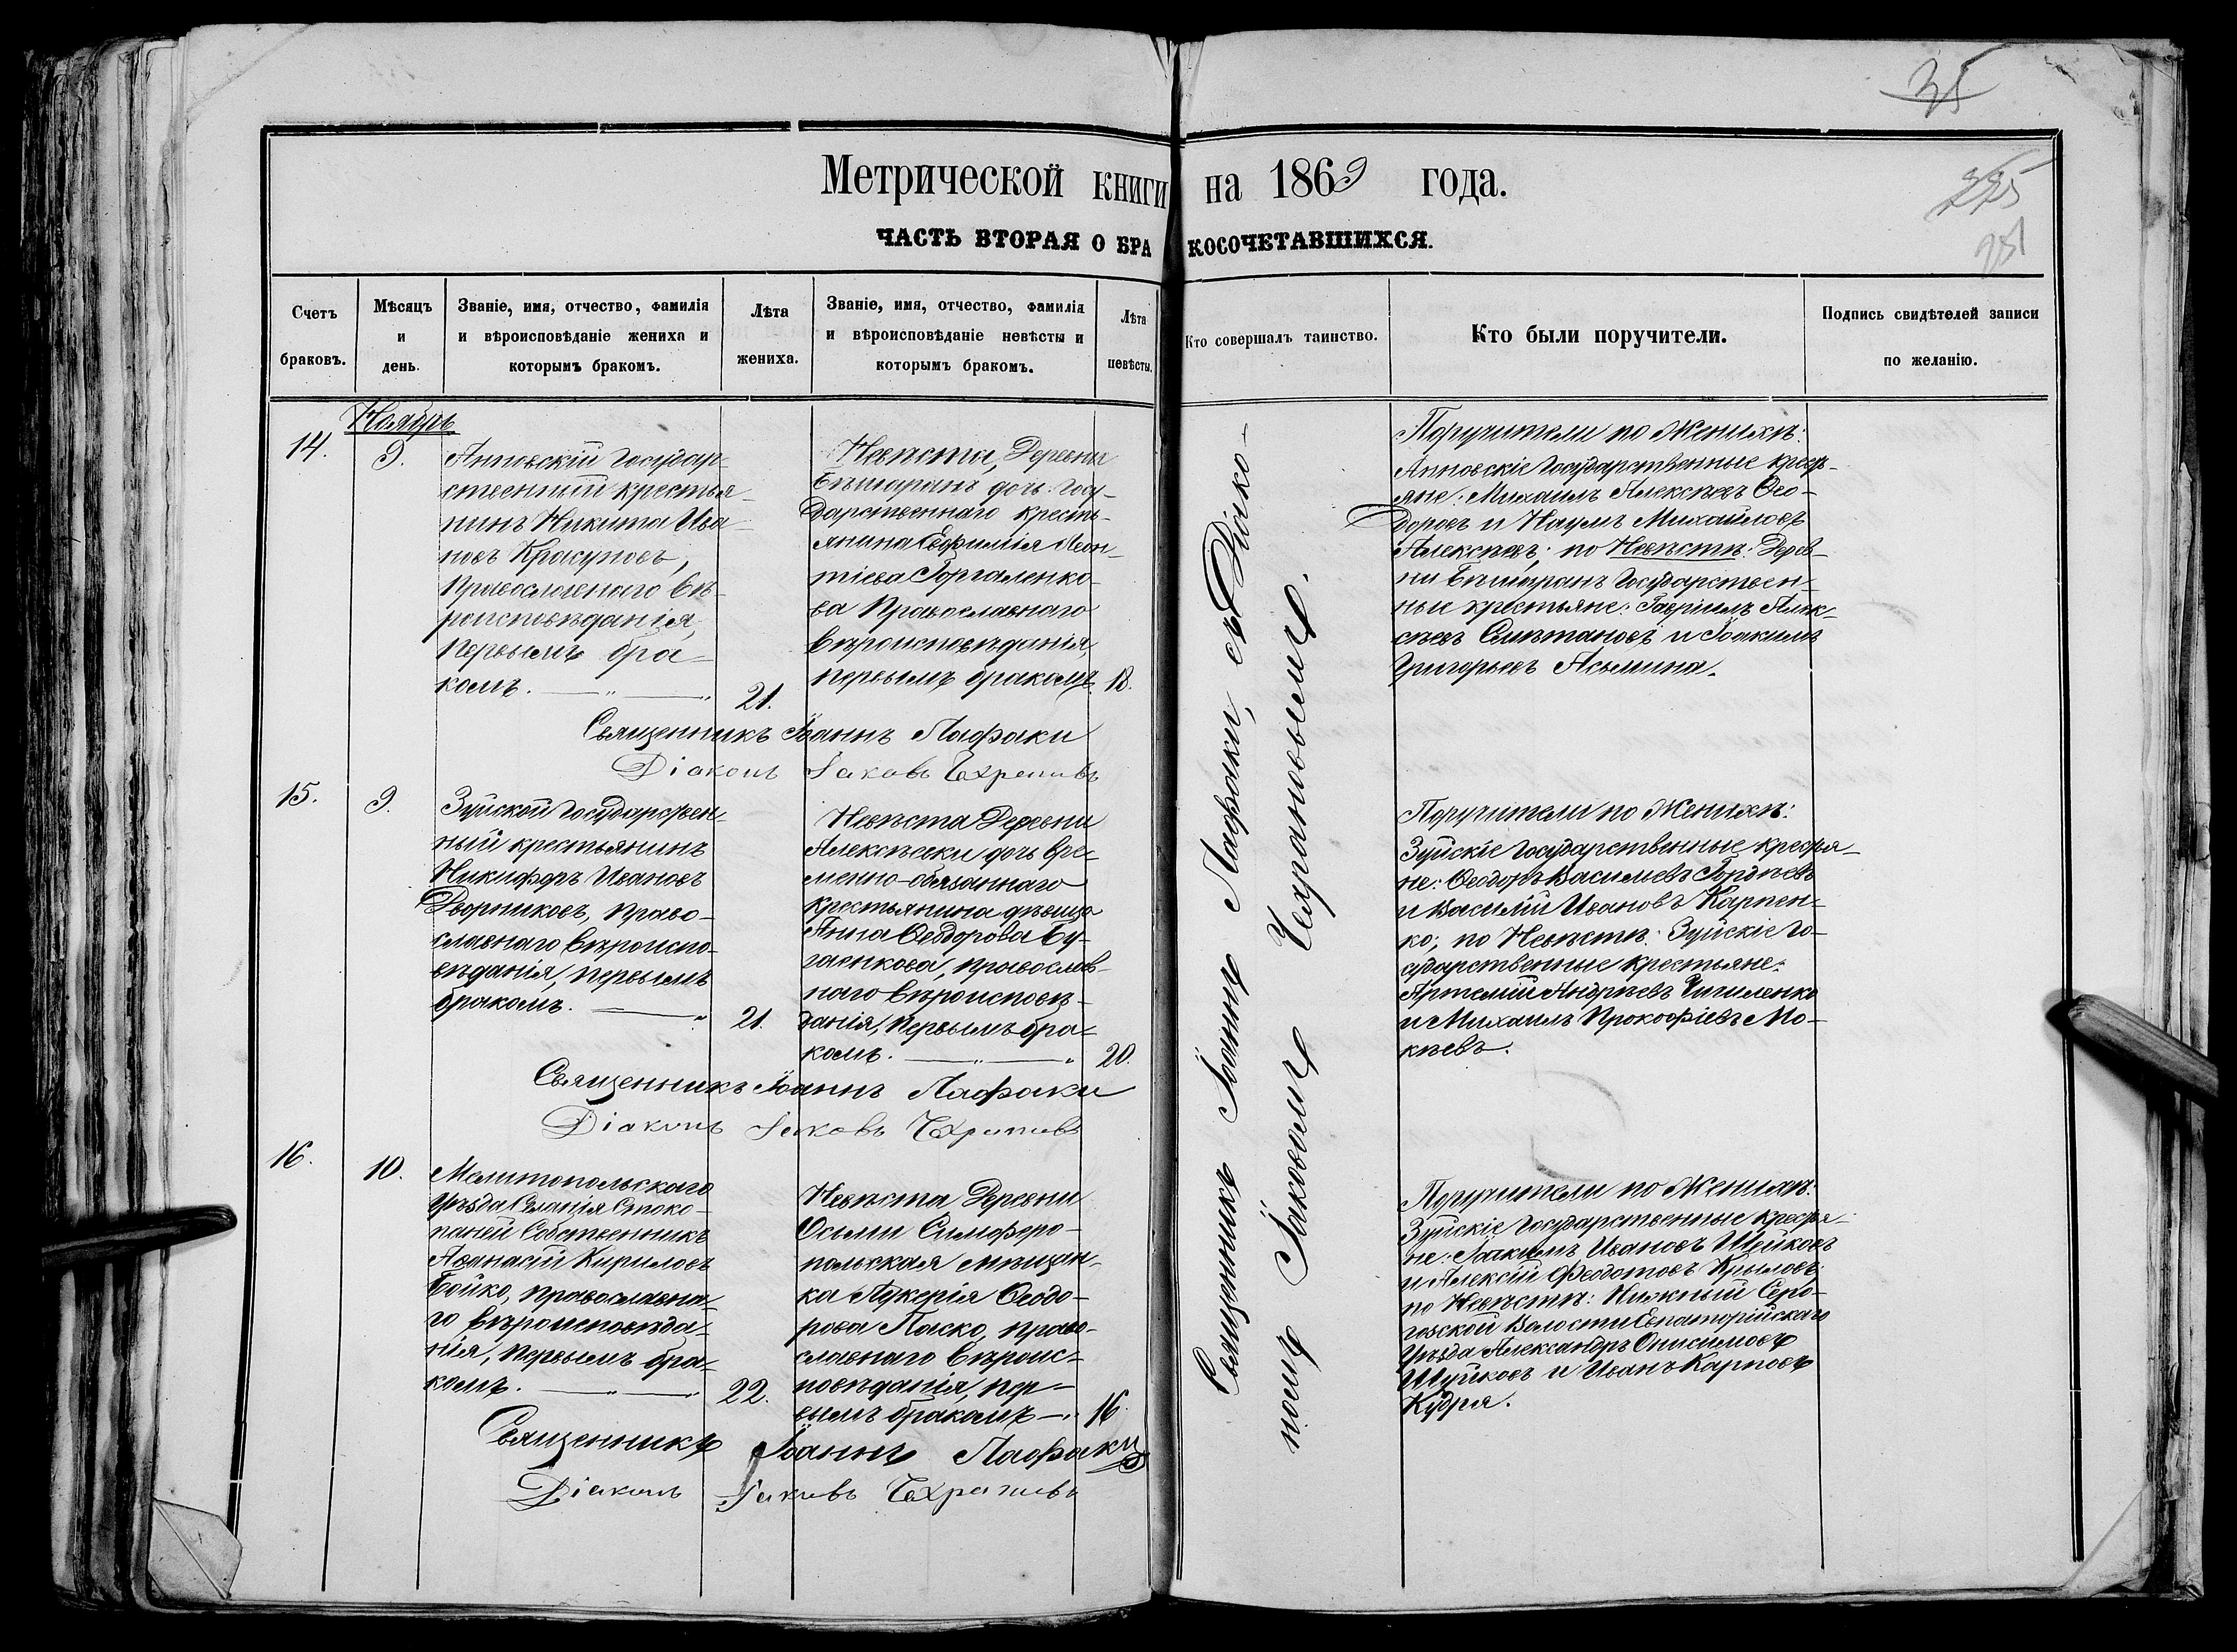 35
Метрической книги на 1869 года.
ЧАСТЬ ВТОРАЯ О БРАКОСОЧЕТАВШИХСЯ.
Счетъ браковъ.
Мѣсяцъ и день.
Званіе, имя, отчество, фамилія
и вѣроисповѣданіе жениха и
которымъ бракомъ.
Лѣта
жениха.
Званіе, имя, отчество, фамилія
и вѣроисповѣданіе невѣсты и
которымъ бракомъ.
Лѣта
невѣсты.
Кто совершалъ таинство.
Кто были поручители.
Подпись свидѣтелей записи
по желанію.
Ноябрь
14.
9.
Анновскій Государ-
ственный крестья-
нинъ Никита Ива
новъ Красуновъ,
Православнаго вѣ-
роисповѣданія,
первымъ бра-
комъ.
21.
Невѣста, Деревни
дочь Госу-
дарственнаго кресть-
янина Евфимія Леон-
тіева Горгаленко-
ва Православнаго
вѣроисповѣданія,
первымъ бракомъ.
18.
Священникъ Іоаннъ Лафаки
Діаконъ Іаковъ Чехрановъ
Священникъ Іоаннъ Лафаки, съ Діако-
номъ Іаковомъ Чехрановымъ.
Поручители по Женихѣ:
Анновскіе Государственные кресть-
яне: Михаилъ Алексѣевъ Ѳео-
доровъ и Наумъ Михайловъ
Алексѣевъ; по Невѣстѣ: Дерев-
ни Государствен-
ные крестьяне: Гавріилъ Алек-
сѣевъ и Іоакимъ
Григорьевъ
15.
9.
Зуйской Государствен-
ный крестьянинъ
Никифоръ Ивановъ
Дворниковъ, Право-
славнаго вѣроиспо-
вѣданія, первымъ
бракомъ.
21.
Невѣста Деревни
Алексѣевки дочь вре-
менно-обязаннаго
крестьянина дѣвица
Анна Ѳеодорова Бу-
гаенкова, православ-
наго вѣроисповѣ-
данія, первымъ бра-
комъ.
20.
Священникъ Іоаннъ Лафаки
Діаконъ Іаковъ Чехрановъ
Поручители по Женихѣ:
Зуйскіе Государственные крестья-
не: Ѳеодоръ Васильевъ Гордѣевъ
и Василій Ивановъ Карпен-
ко; по Невѣстѣ: Зуйскіе Го-
сударственные крестьяне:
Артемій Андреевъ Чигиленко
и Михаилъ Прокофіевъ Мо-
кѣевъ.
16.
10.
Мелитопольскаго
Уѣзда Селенія Стоко-
паней Собственникъ
Аѳанасій Кириловъ
Бойко, православна-
го вѣроисповѣда-
нія, первымъ бра-
комъ.
22.
Невѣста Деревни
Осьми Симферо-
польская мѣщан-
ка Лукерія Ѳеодо-
рова Паско, право-
славнаго вѣроис-
повѣданія, пер-
вымъ бракомъ
16.
Священникъ Іоаннъ Лафаки
Діаконъ Іаковъ Чехрановъ
Поручители по Женихѣ:
Зуйскіе Государственные крестья-
не: Іоакимъ Ивановъ Шейковъ
и Алексій Ѳеодотовъ Крыловъ;
по Невѣстѣ: Нижній Серо-
гозской Волости Евпаторійскаго
Уѣзда Александръ Онисимовъ
Шуйковъ и Иванъ Карповъ
Кудря.